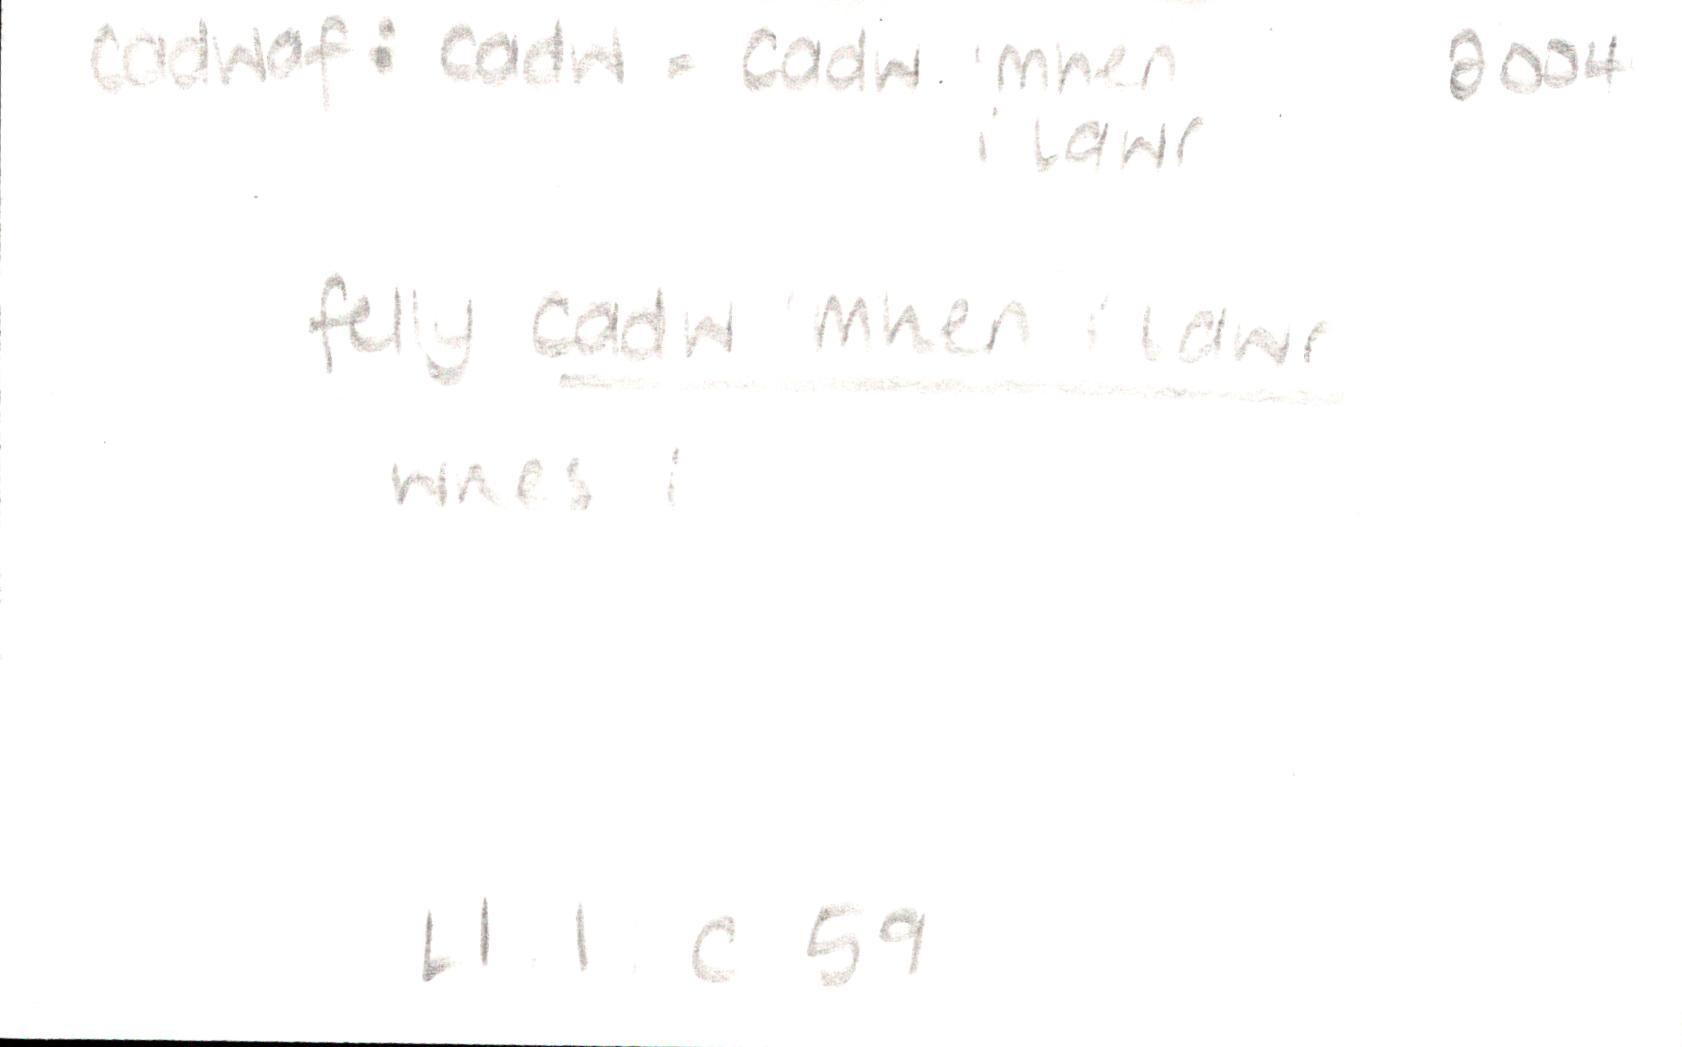 cadwaf: cadw - cadw 'mhen 2004
i lawr
felly cadw 'mhen i lawr
wnes i
Ll. 1. c 59